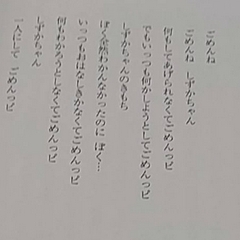 ごめんね
ごめんね　しずかちゃん
何もしてあげられなくてごめんっピ
でもいっつも何かしようとしてごめんっピ
しずかちゃんのきもち
ぼく全然わかんなかったのに ぼく…
いっつもおはなしきかなくてごめんっピ
何もわかろうとしなくてごめんっピ
しずかちゃん
一人にして　ごめんっピ